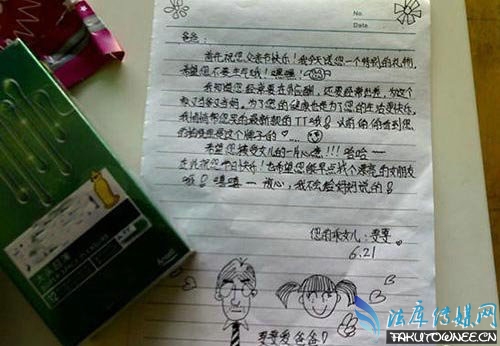 No.
Date
爸爸:
首先祝您父亲节快乐!我今天送您一个特别的礼物,
希望您不要生气哦!嘿嘿!
我知道您经常要在外应酬,还要经常出差,为这个
家又当爹又当妈,为了您的健康也是为了您的生活更快乐,
我悄悄帮您买的最新款的TT哦!以前偷偷看到您
是这个牌子的
希望您接受女儿的一片心意!!!哈哈——
在此祝您节日快乐!也希望您能早点找个漂亮的女朋友
哦!嘻嘻——放心,我不会给妈妈说的!
您的乖女儿:雯雯
6.21
雯雯爱爸爸!
12
法库传媒网
TAKUTOWNEE.CN